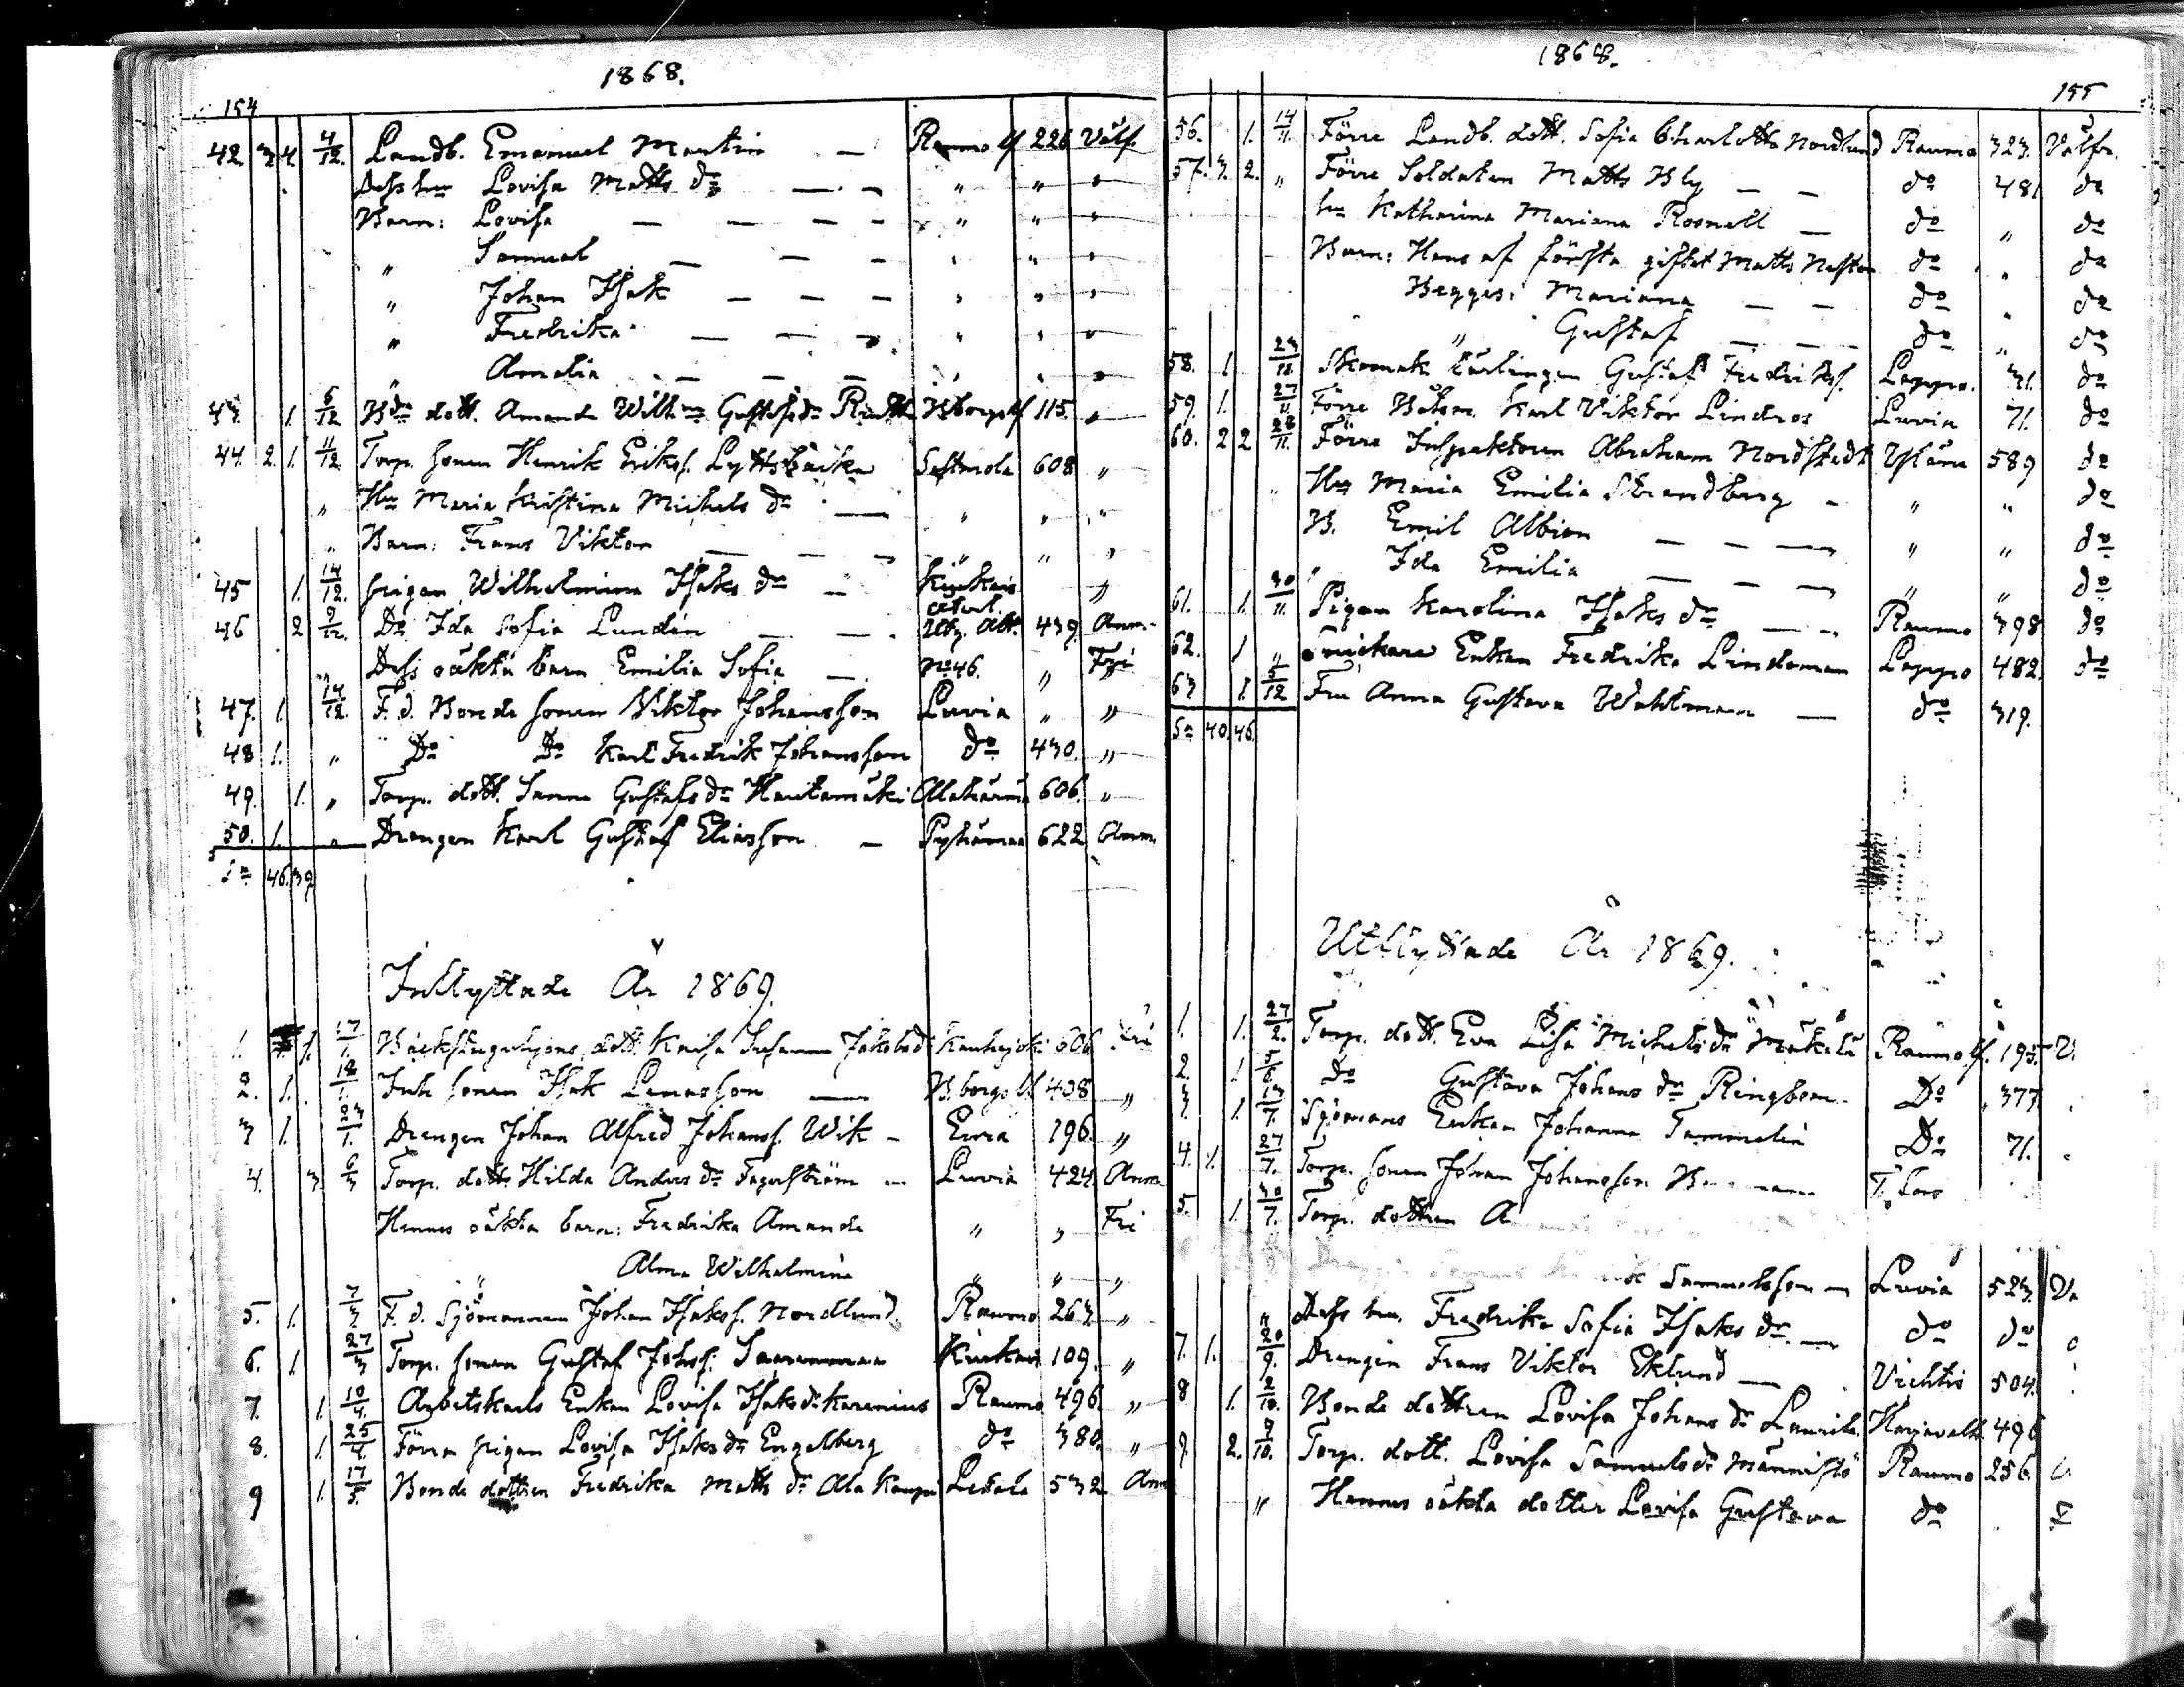 1868.
154
42 3. 4. 4/12. Landb. Emanuel Martin — Raumo lf 226 Välf.
Dess hu Lovisa Matts dr — " " "
Barn: Lovisa — — — " " "
" Samuel — — " " "
" Johan Isak — — — " " "
" Fredrika — — " " "
" Amalia — — — " " "
43. 1. 5/12 Bde dott. Amanda Wilhma Gustafsdr B.borgs lf 115. "
44. 2. 1. 11/12 Torp. sonen Henrik Erikss. Sastmola 608 "
" Hu Maria Kristina Michels dr — " " "
" Barn: Frans Viktor — — — " " "
45 1. 14/12. pigan Wilhelmina Isaks dr — Kiukais "
46 2 9/12. Do Ida Sofia Lundin — — 439 Anm.
" Dess oäkta barn Emilia Sofia — No 46. " Fri
47. 1. 14/12. F. d. Bonde sonen Viktor Johansson Luvia " "
48 1. " Do Do Karl Fredrik Johansson do 430. "
49. 1. " Torp. dott. Sanna Gustafs dr Hautamäki Alahärmä 606. "
50. 1. " Drengen Karl Gustaf Eliasson — Pyhämaa 622 Anm
Sa 46. 39
Inflyttade År 1869.
1. 1. 17/1. Backstuguhjons dott. Kaisa Susanna Jakobsd. Kauhajoki 606 Fri
2. 1. 18/1. Inh sonen Isak Lenasson — B.borgs lf 408 "
3 1. 23/1. Drengen Johan Alfred Johanss. Wik — Eura 196. "
4. 3 6/3 Torp. dott. Hilda Anders dr Fagerström — Luvia 424. Anm
Hennes oäkta barn: Fredrika Amanda " " Fri
" Alma Wilhelmina " " "
5. 1. 7/3. F. d. Sjömannen Johan Isakss. Nordlund Raumo 263. "
6. 1. 27/3 Torp. sonen Gustaf Johss. Saarenmaa Kiukais 109. "
7. 1. 10/4. Arbetskarls Enkan Lovisa Isaksdr Karenius Raumo 496. "
8. 1. 25/4. Förra pigan Lovisa Isaksdr Engelberg do 380. "
9 1. 17/5. Bonde dottren Fredrika Matts dr Ala Kaupi Letala 532 Anm
1868.
155
56. 1. 14/11. Förre Landb. dott. Sofia Charlotta Nordlund Raumo 323. Välfr.
57. 3. 2. " Förre Soldaten Matts Bly — — do 481 do
hu Katharina Mariana Rosnell — do " do
Barn: Hans af första giftet Matts Nestor do " do
Begges: Mariana — — do " do
" Gustaf — — do " do
58. 1. 23/11. Skomak. Lärlingen Gustaf Fredrikss. Lappo. 31. do
59. 1. 27/11 Förre Båtsm. Karl Viktor Lindros Luvia 71. do
60. 2 2 28/11. Förre Inspektoren Abraham Nordstedt Yläne 589 do
" Hu Maria Emilia Strandberg — " " do
B. Emil Albion — — " " do
" Ida Emilia — — " " do
61. 1. 30/11. Pigan Karolina Isaks dr — Raumo 398 do
62. 1 " Snickare Enkan Fredrika Lindeman Lappo 482. do
63 1 5/12 Fru Anna Gustava Wahlman — do 319.
Sa 40. 46.
Utflyttade År 1869.
1. 1. 27/2. Torp. dott. Eva Lisa Michelsdr Mäkelä Raumo lf. 195. V.
2. 1 5/6 do Gustava Johans dr Ringbom. Do 377
3. 1. 13/7. Sjömans Enkan Johanna Tammelin Do 71.
4. 1. 27/7. Torp. sonen Johan Johansson
5. 1. 30/7. Torp. dottren A
Samuelsson — Luvia 523. Do
" Dess hu. Fredrika Sofia Isaks dr — do do
7. 1. 20/9. Drengen Frans Viktor Eklund — Vichtis 504.
8 1. 2/10. Bonde dottren Lovisa Johans dr Laurila. Harjavalta 496
9 2. 9/10. Torp. dott. Lovisa Samuelsdr Männistö Raumo 256.
" Hennes oäkta dotter Lovisa Gustava do